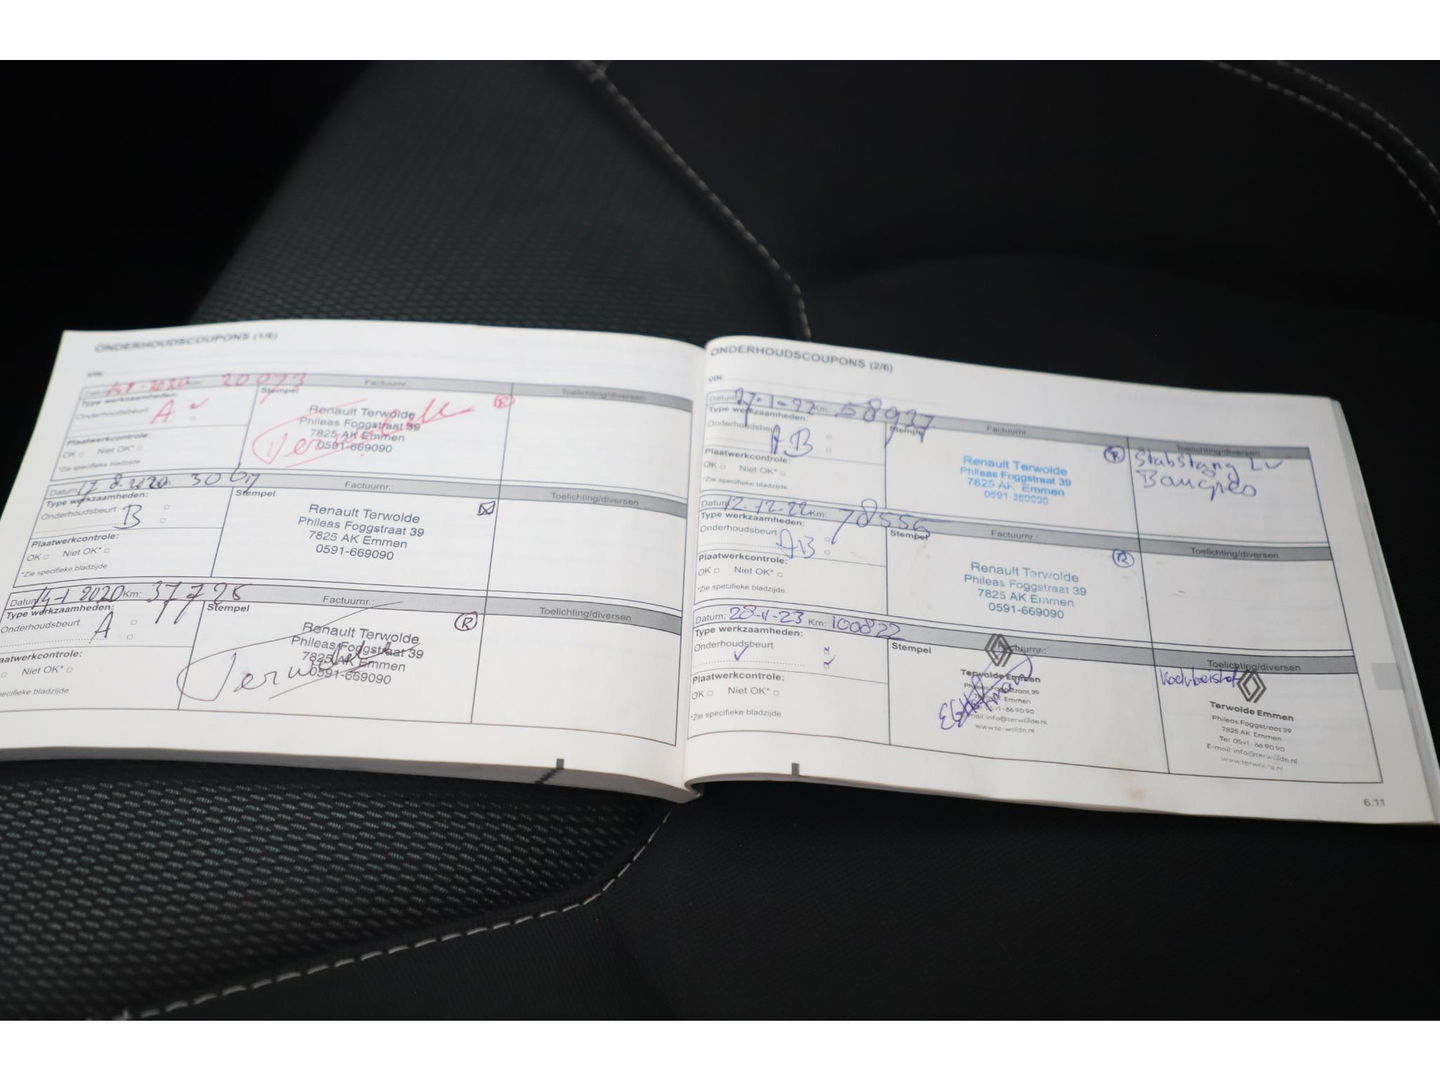 ONDERHOUDSCOUPONS (1/6)
VIN:
Datum: 2020 Km: 20093
Factuurnr.:
Type werkzaamheden:
Stempel
Toelichting/diversen
Onderhoudsbeurt
A
Renault Terwolde
Phileas Foggstraat 39
7825 AK Emmen
0591-669090
Terwolde
R
Plaatwerkcontrole:
OK Niet OK*
*Zie specifieke bladzijde
Datum: 17 8.2020
Factuurnr.:
Type werkzaamheden:
Stempel
Toelichting/diversen
Onderhoudsbeurt
B
Renault Terwolde
Phileas Foggstraat 39
7825 AK Emmen
0591-669090
Plaatwerkcontrole:
OK Niet OK*
*Zie specifieke bladzijde
Datum: 14-1 2020 Km: 37796
Factuurnr.:
Type werkzaamheden:
Stempel
Toelichting/diversen
Onderhoudsbeurt
A
Renault Terwolde
Phileas Foggstraat 39
7825 AK Emmen
0591-669090
Terwolde
R
Plaatwerkcontrole:
OK Niet OK*
*Zie specifieke bladzijde
ONDERHOUDSCOUPONS (2/6)
VIN:
Datum: 27-1-22 Km: 58937
Factuurnr.:
Type werkzaamheden:
Stempel
Toelichting/diversen
Onderhoudsbeurt
AB
Renault Terwolde
Phileas Foggstraat 39
7825 AK Emmen
R
Plaatwerkcontrole:
OK Niet OK*
*Zie specifieke bladzijde
Datum: 12.12.22 Km: 78556
Factuurnr.:
Type werkzaamheden:
Stempel
Toelichting/diversen
Onderhoudsbeurt
AB
Renault Terwolde
Phileas Foggstraat 39
7825 AK Emmen
0591-669090
R
Plaatwerkcontrole:
OK Niet OK*
*Zie specifieke bladzijde
Datum: 28-11-23 Km: 100822
Factuurnr.:
Type werkzaamheden:
Stempel
Toelichting/diversen
Onderhoudsbeurt
Terwolde Emmen
Phileas Foggstraat 39
7825 AK Emmen
E-mail: info@terwolde.nl
www.terwolde.nl
Terwolde Emmen
Phileas Foggstraat 39
7825 AK Emmen
Tel: 0591 - 66 90 90
E-mail: info@terwolde.nl
www.terwolde.nl
Plaatwerkcontrole:
OK Niet OK*
*Zie specifieke bladzijde
6.11